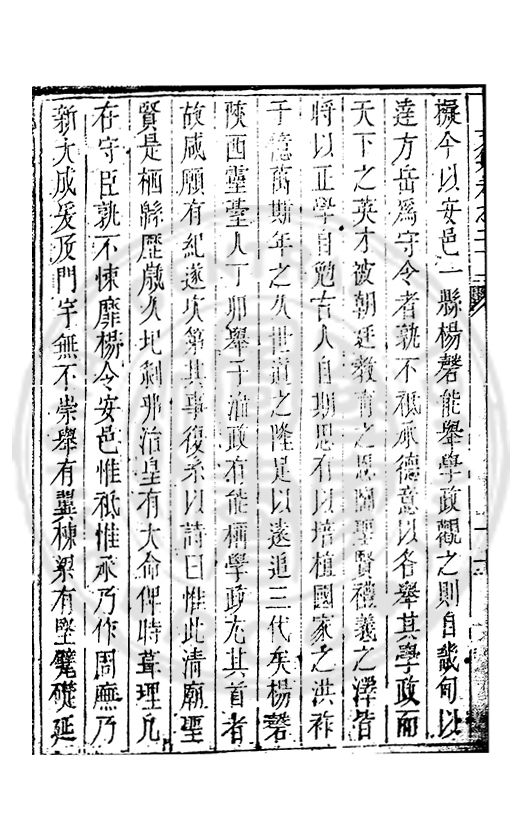 擬今以安邑一縣楊磬能舉學政觀之則自畿甸以
達方岳爲守令者孰不祗承德意以各舉其學政而
天下之英才被朝廷教育之恩聖賢禮義之澤皆
將以正學自勉古人自期思有以培植國家之洪祚
于億萬斯年之久世道之隆是以遠追三代矣楊磬
陝西靈臺人丁卯舉于治政有能稱學政尤其首者
故咸願有紀遂次第其事復系以詩曰惟此清廟聖
賢是栖縣歷歲久圮剝弗治皇有大命俾時葺理凡
在守臣孰不悚靡楊令安邑惟祗惟承乃作周廡乃
新大成爰及門宇無不崇舉有翼棟梁有堅甓礎延